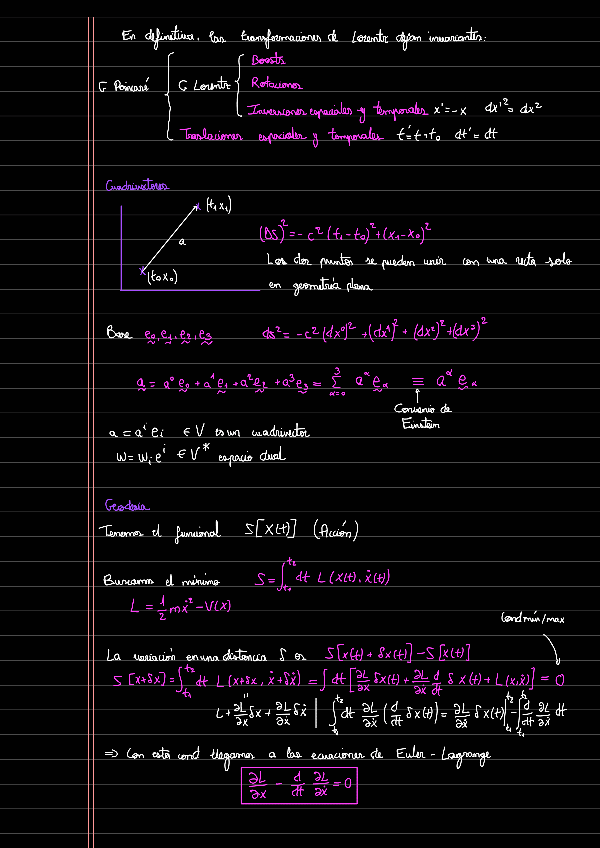 En definitiva, las transformaciones de Lorentz dejan invariantes:
G Poincaré { G Lorentz { Boosts
Rotaciones
Inversiones espaciales y temporales x'=-x dx'²=dx²
Traslaciones espaciales y temporales t'=t+t₀ dt'=dt
Cuadrivectores
(t₁x₁)
a
(t₀x₀)
(ΔS)²=-c²(t₁-t₀)²+(x₁-x₀)²
Los dos puntos se pueden unir con una recta solo
en geometría plana
Base e₀,e₁,e₂,e₃ ds²=-c²(dx⁰)²+(dx¹)²+(dx²)²+(dx³)²
a = a⁰e₀+a¹e₁+a²e₂+a³e₃ = Σ_{α=0}^{3} a^α e_α ≡ a^α e_α
Convenio de
Einstein
a = aⁱ eᵢ ∈ V es un cuadrivector
w = wᵢ eⁱ ∈ V* espacio dual
Geodesia
Tenemos el funcional S[x(t)] (Acción)
Buscamos el mínimo S=∫_{t₁}^{t₂} dt L(x(t), ẋ(t))
L = 1/2 mẋ² - V(x)
Cond mín/max
La variación en una distancia δ es S[x(t)+δx(t)]-S[x(t)]
S[x+δx]=∫_{t₁}^{t₂} dt L(x+δx, ẋ+δẋ) = ∫dt [∂L/∂x δx(t)+∂L/∂ẋ d/dt δx(t)+L(x,ẋ)] = 0
L+∂L/∂x δx+∂L/∂ẋ δẋ | ∫_{t₁}^{t₂} dt ∂L/∂ẋ (d/dt δx(t)) = ∂L/∂ẋ δx(t)|_{t₁}^{t₂} - ∫_{t₁}^{t₂} d/dt ∂L/∂ẋ dt
⇒ Con esta cond llegamos a las ecuaciones de Euler-Lagrange
∂L/∂x - d/dt ∂L/∂ẋ = 0